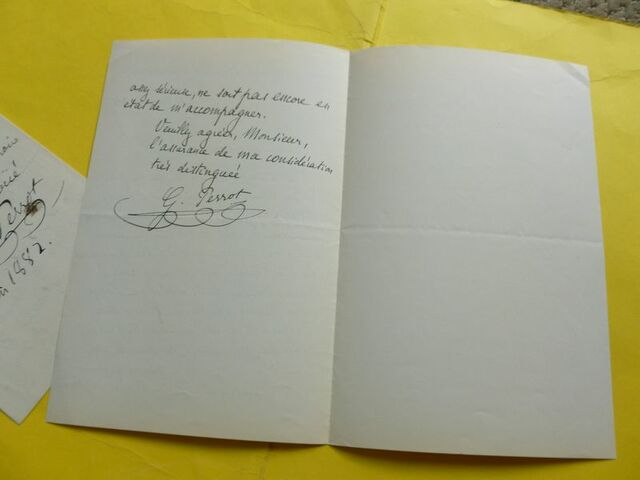 assez sérieuse, ne soit pas encore en
état de m'accompagner.
Veuillez agréer, Monsieur,
l'assurance de ma considération
très distinguée
G. Perrot
Perrot
1882.